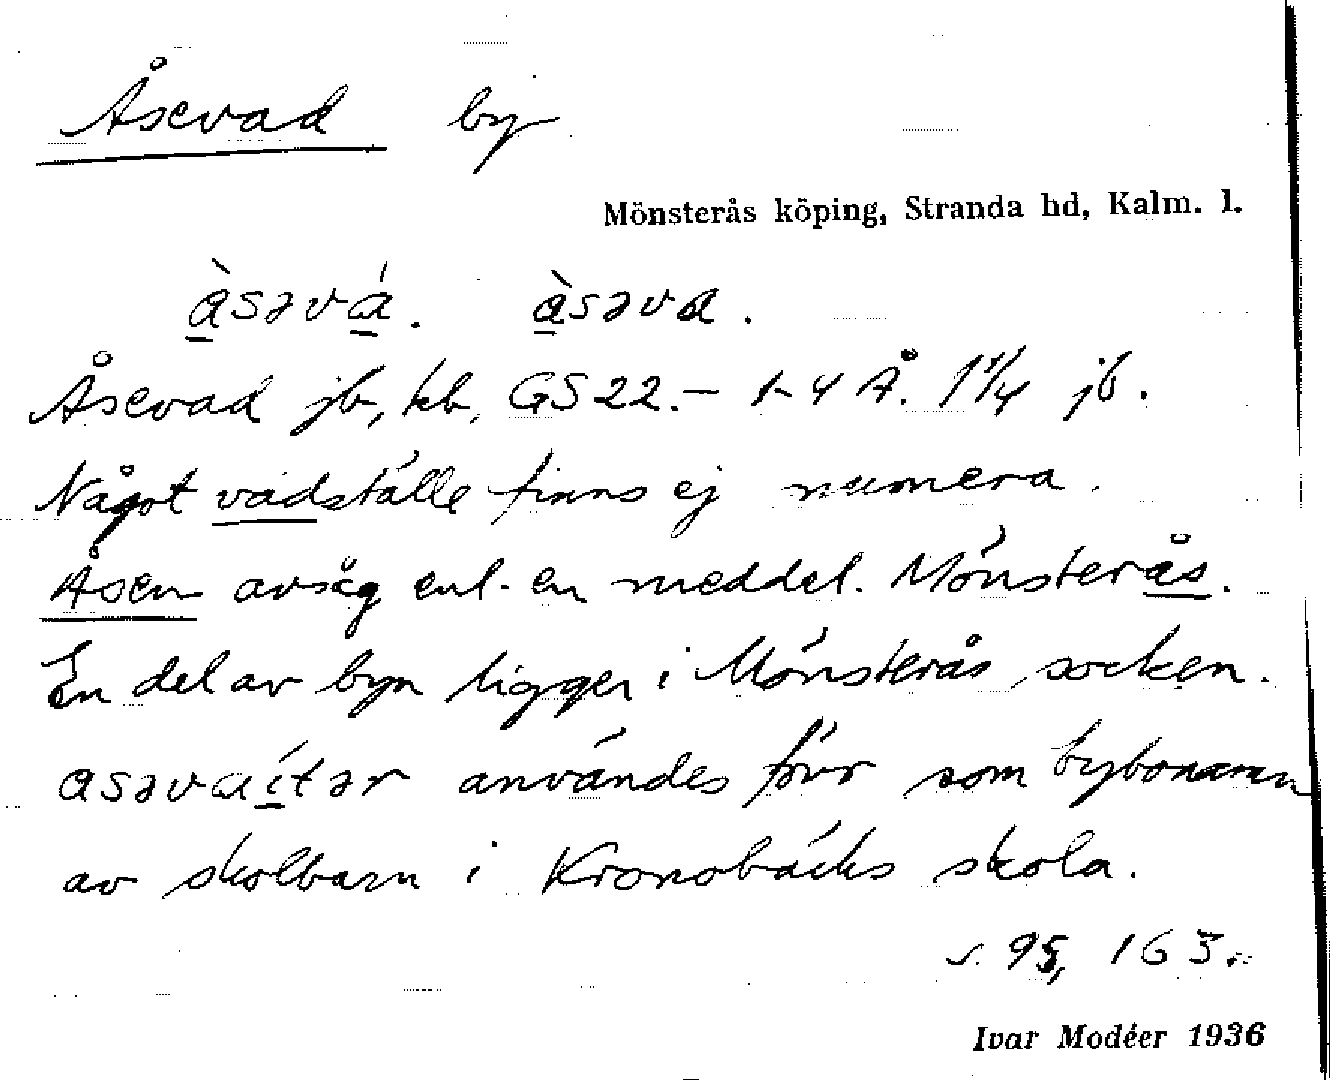 Åsevad by
Mönsterås köping, Stranda hd, Kalm. l.
àsəvá. àsəva.
Åsevad jb, kb, GS 22. – 1-4 Å. 1 1/4 jb.
Något vadställe finns ej numera.
Åsen avsåg enl. en meddel. Mönsterås.
En del av byn ligger i Mönsterås socken.
asəvaítər användes förr som bybonamn
av skolbarn i Kronobäcks skola.
s. 95, 163.
Ivar Modéer 1936